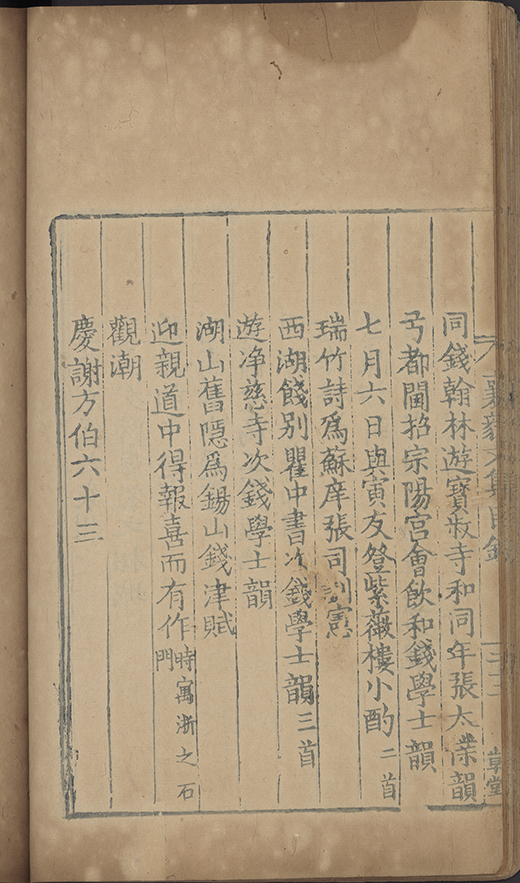 同錢翰林遊寶叔寺和同年張太業韻
弓都閫招宗陽宮會飲和錢學士韻
七月六日與寅友登紫薇樓小酌二首
瑞竹詩爲蘇庠張司訓憲
西湖餞別瞿中書次錢學士韻三首
遊净慈寺次錢學士韻
湖山舊隱爲錫山錢津賦
迎親道中得報喜而有作時寓浙之石門
觀潮
慶謝方伯六十三
文集目錄
草堂